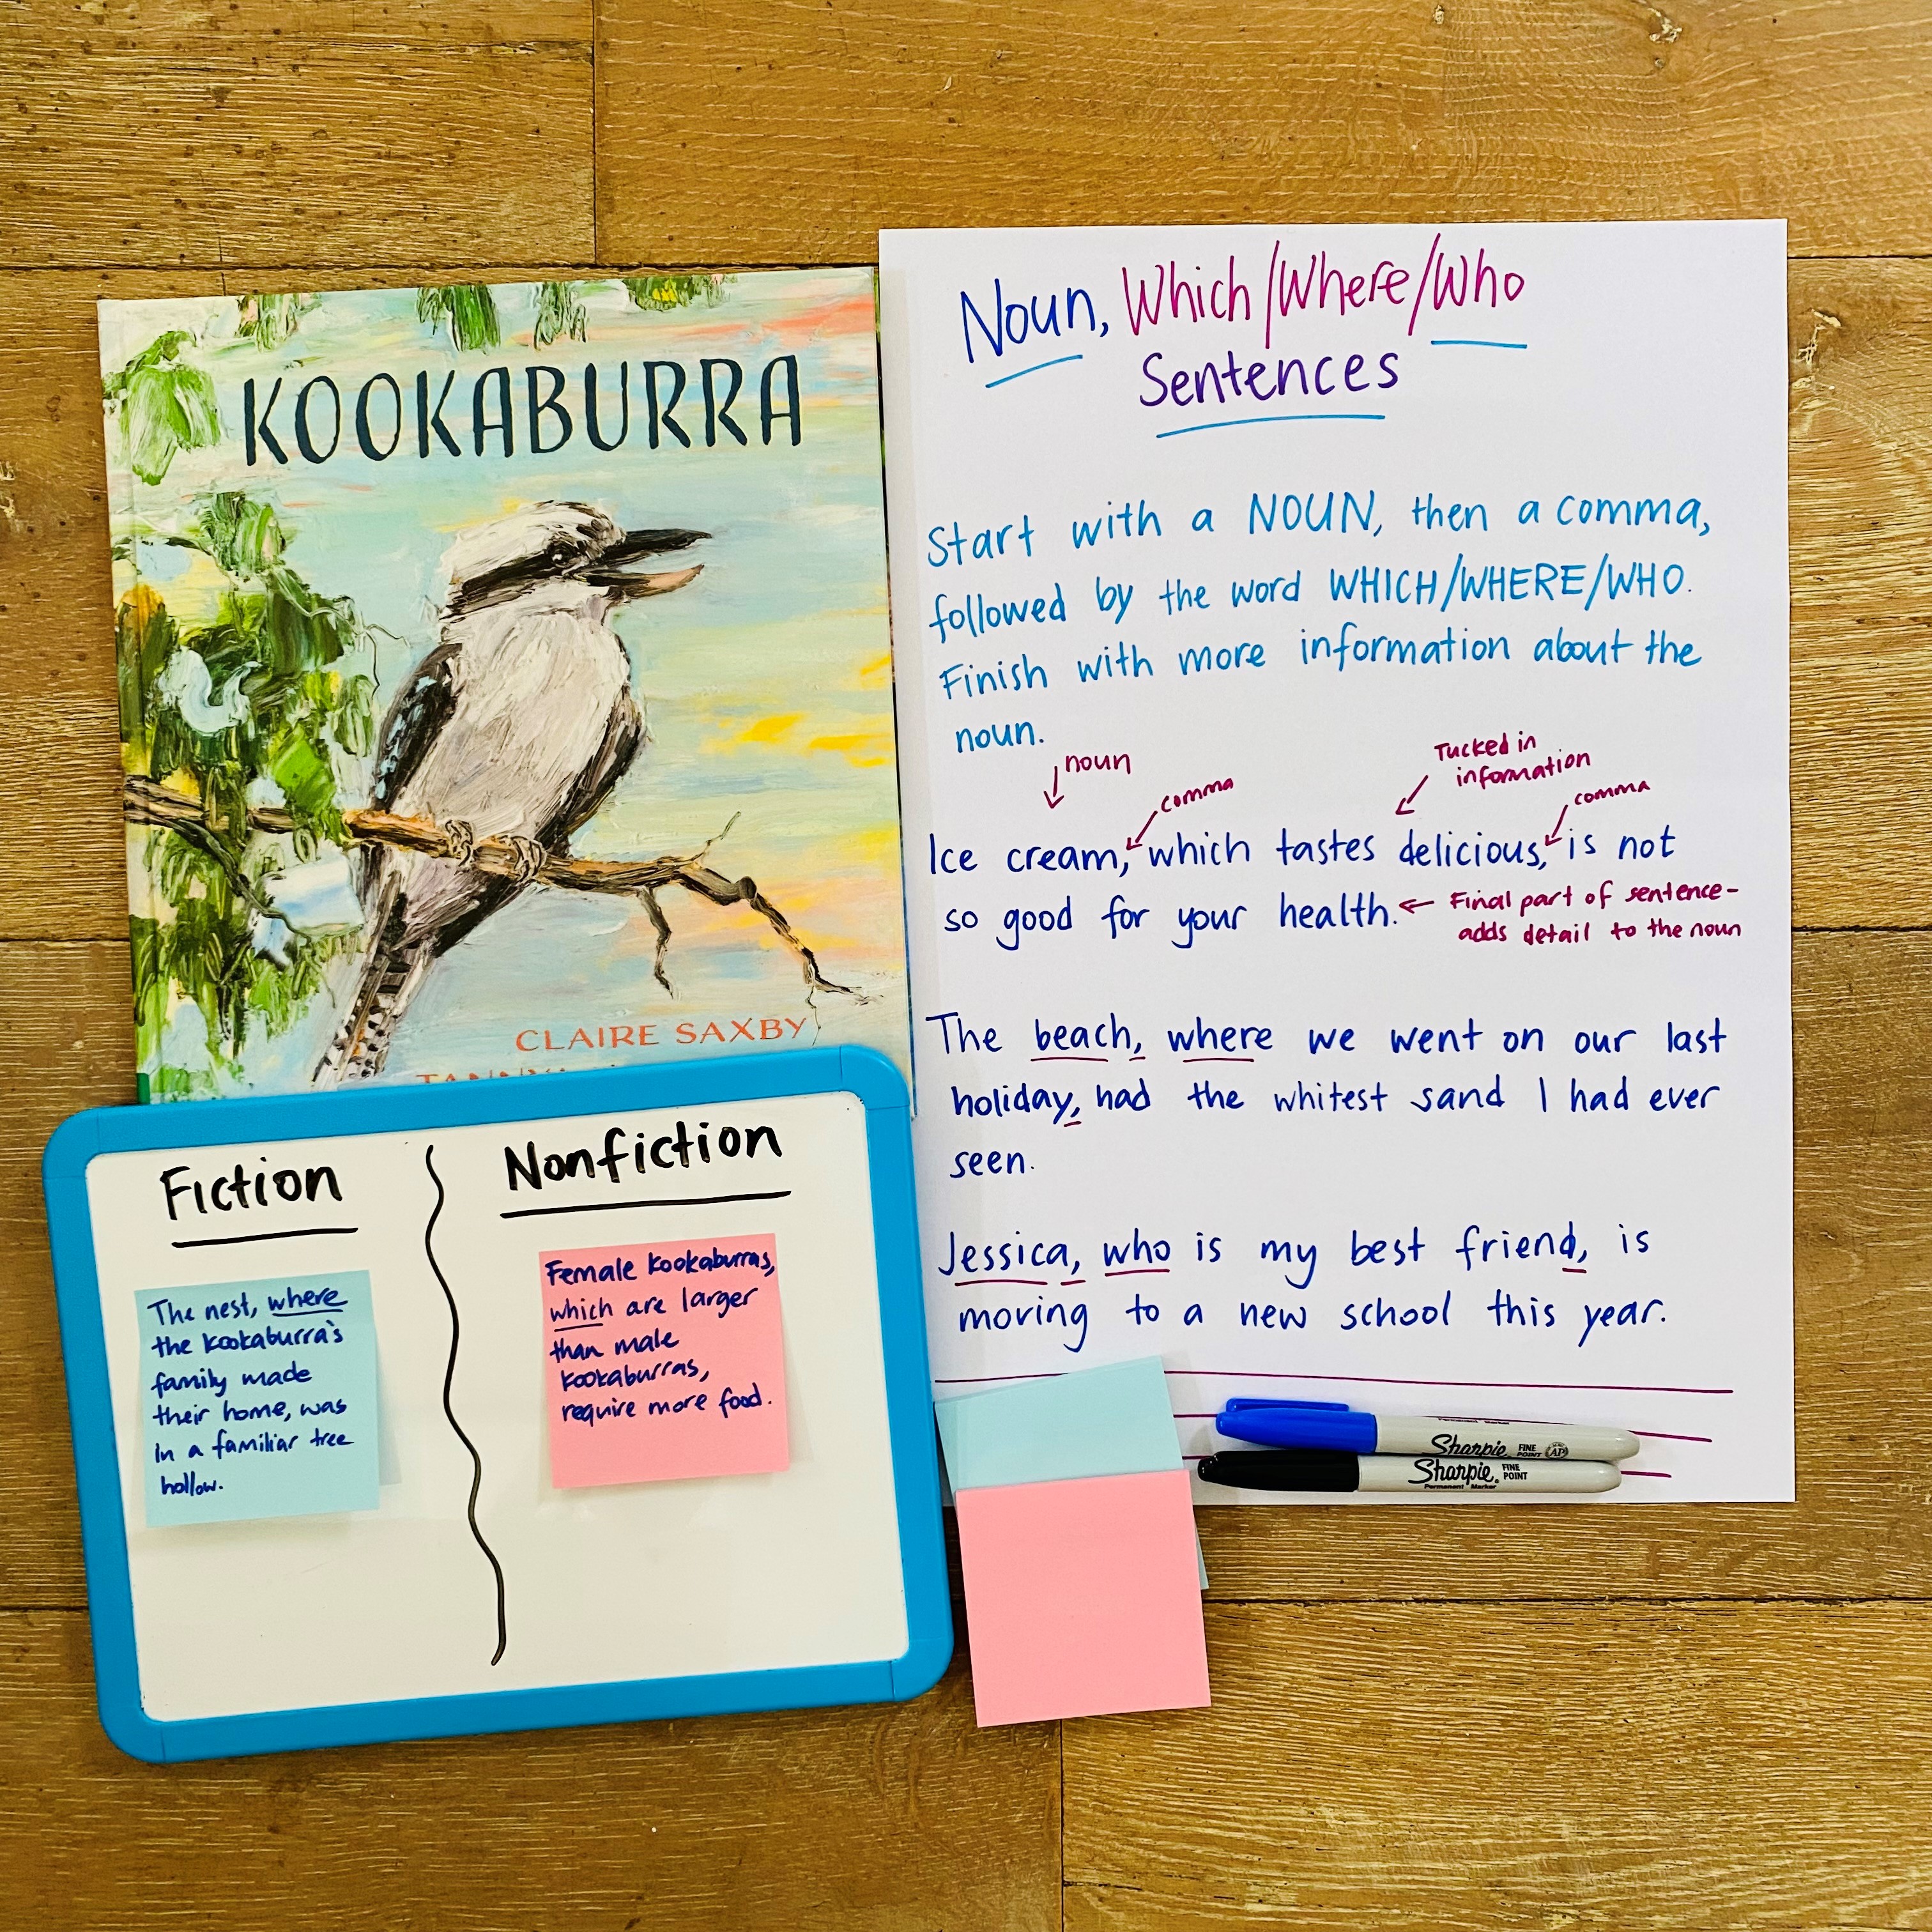 KOOKABURRA
CLAIRE SAXBY
Noun, Which/Where/Who
Sentences
Start with a NOUN, then a comma,
followed by the word WHICH/WHERE/WHO.
Finish with more information about the
noun.
noun
comma
Tucked in
information
comma
Ice cream, which tastes delicious, is not
so good for your health.
Final part of sentence-
adds detail to the noun
The beach, where we went on our last
holiday, had the whitest sand I had ever
seen.
Jessica, who is my best friend, is
moving to a new school this year.
Fiction
The nest, where
the kookaburra's
family made
their home, was
in a familiar tree
hollow.
Nonfiction
Female kookaburras,
which are larger
than male
kookaburras,
require more food.
Sharpie. FINE POINT AP
Sharpie. FINE POINT
Permanent Marker